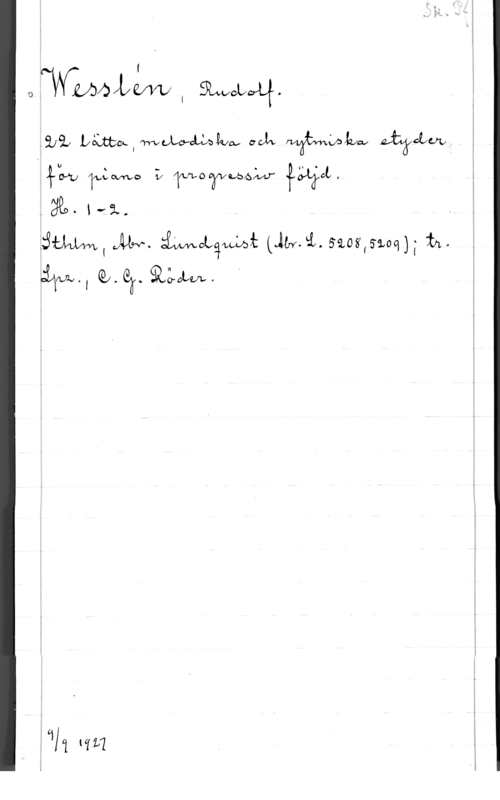 Wesslén, Rudolf.
22 lätta, melodiska och rytmiska etyder
för piano i progressiv följd.
H. 1-2.
Sthlm, Abr. Lundquist (Abr. L. 5208, 5209); tr.
Lpz., C. G. Röder.
9/9 1927